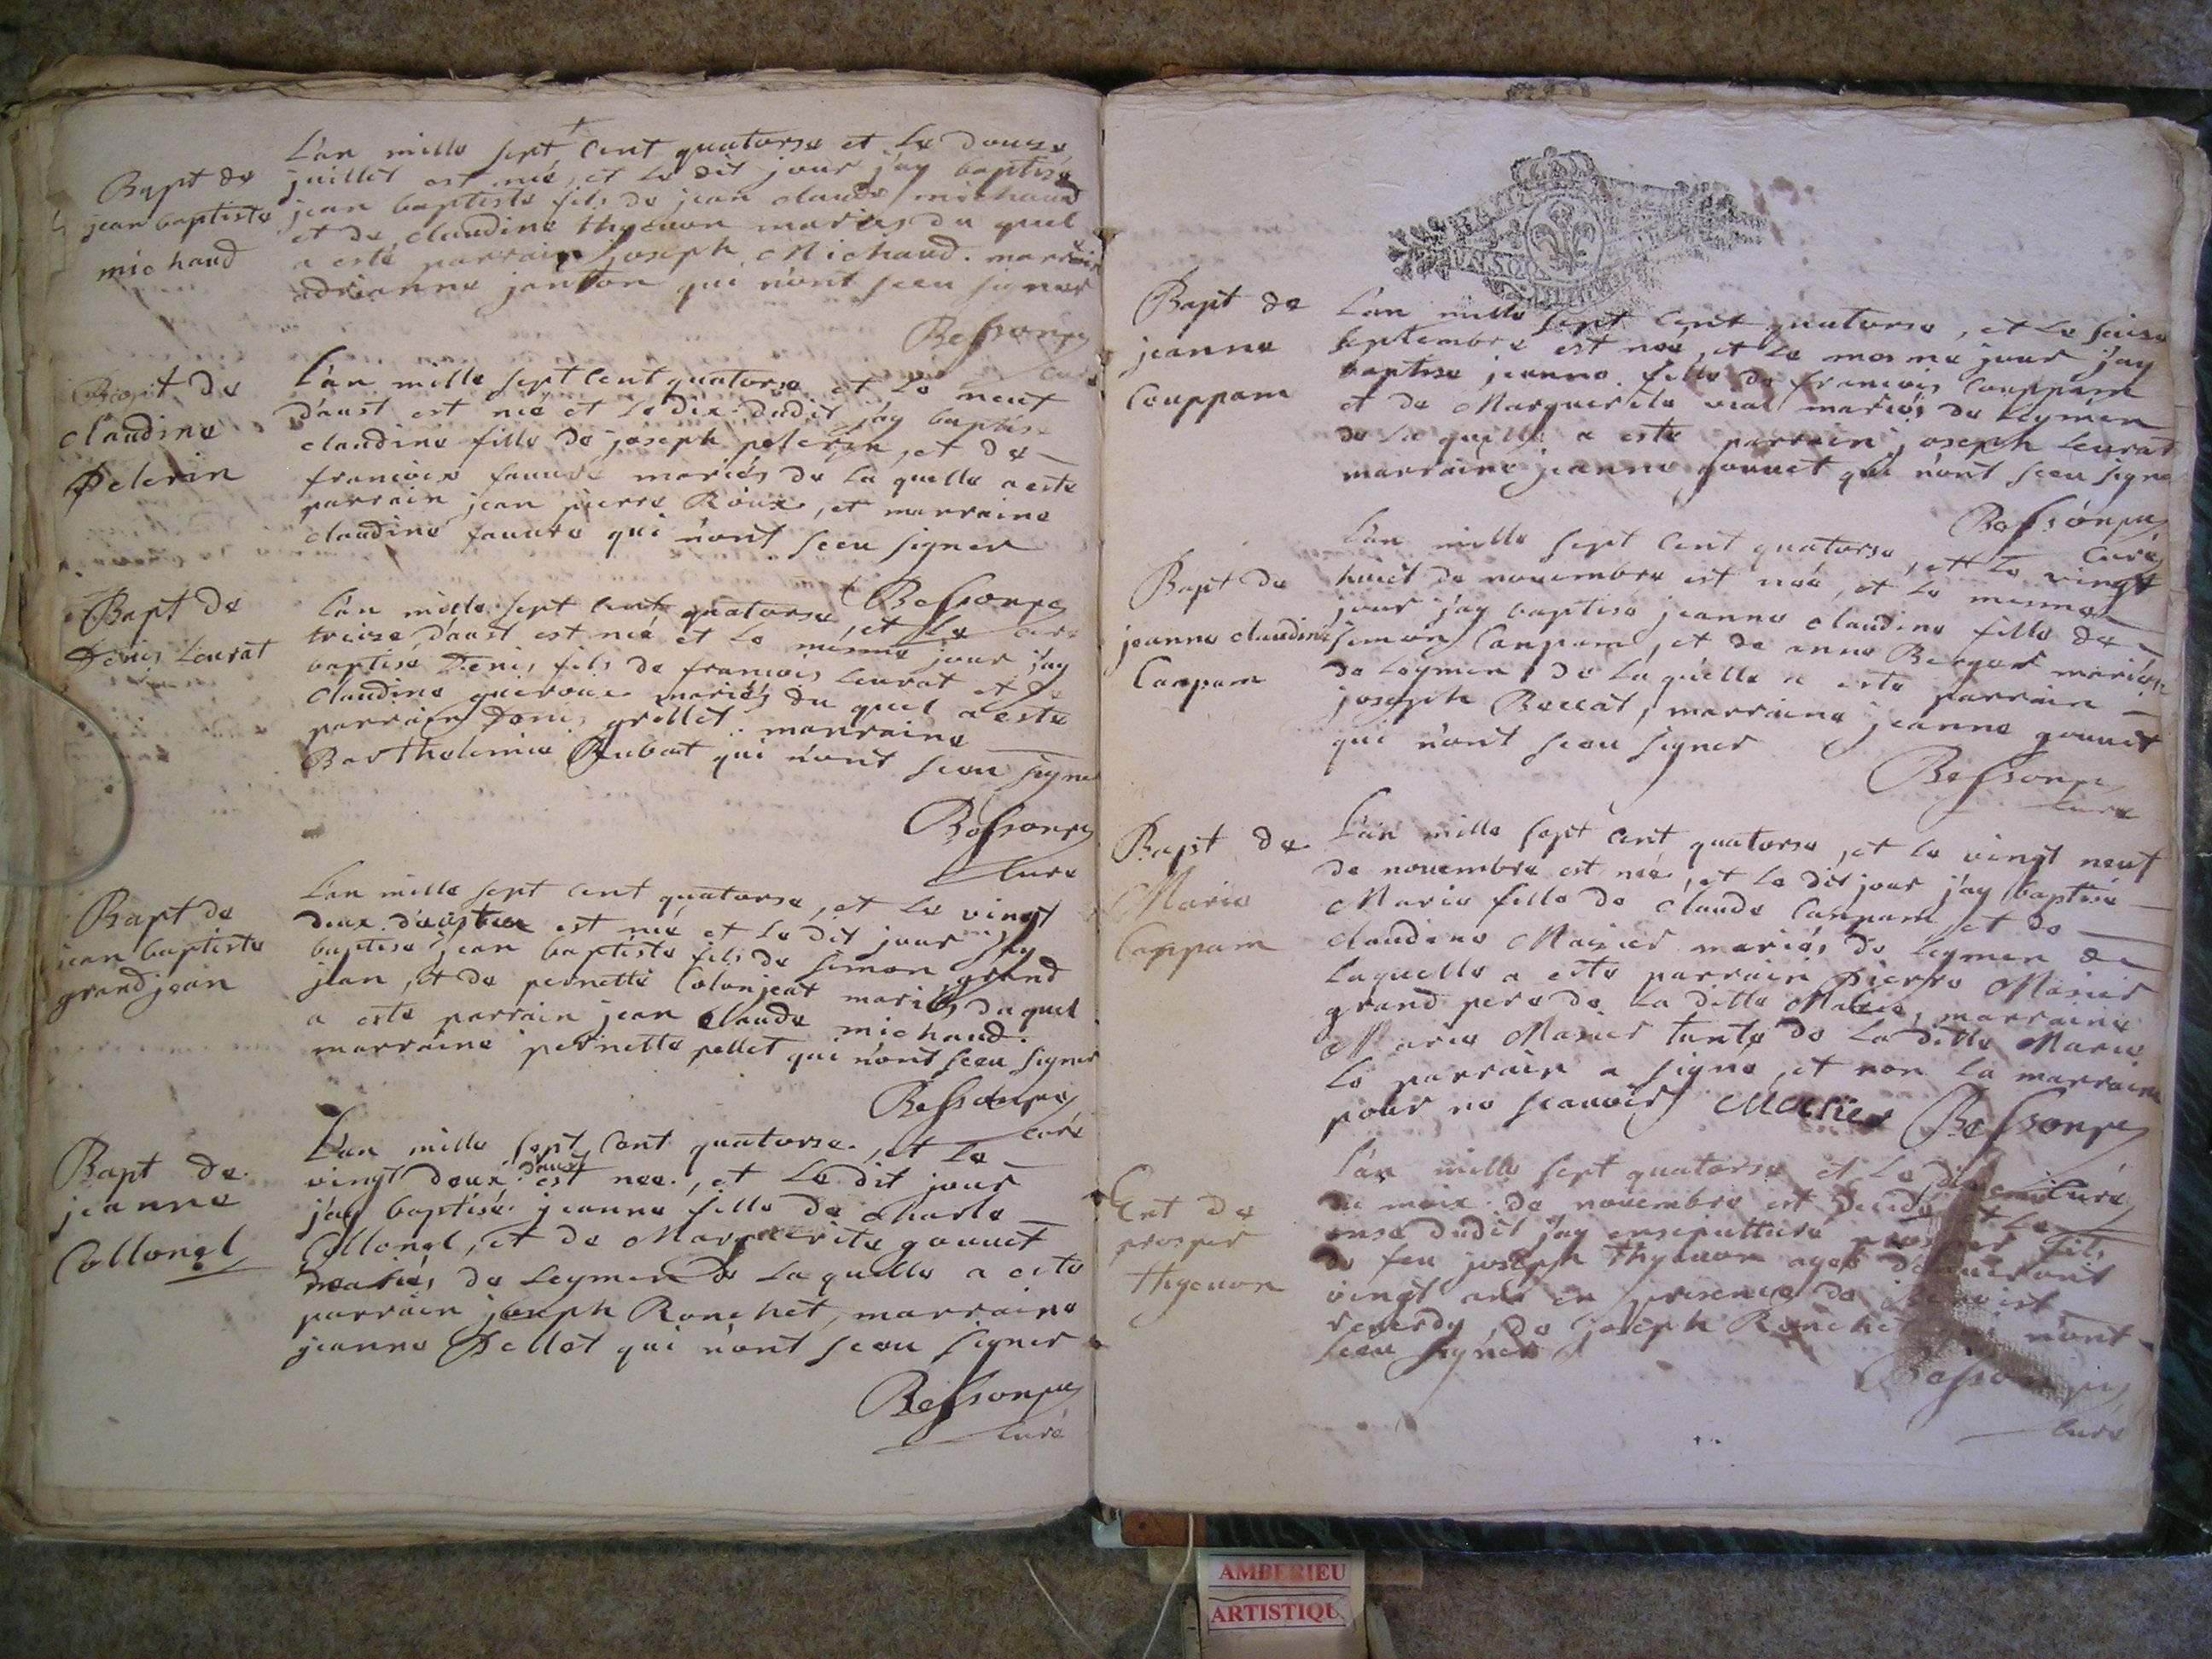 Bapt de
jean baptiste
michaud
L'an mille sept cent quatorse et le douze
juillet est né, et le dit jour j'ay baptisé
jean baptiste fils de jean claude michaud
et de claudine thyeuon mariés du quel
a esté parrain joseph Michaud. marrain
adrianne janton qui n'ont sceu signer
Bessonpy
curé
Bapt de
claudine
Pelerin
L'an mille sept cent quatorse et le neut
d'aust est née et le dix dudit j'ay baptis
claudine fille de joseph pelerin, et de
francoise fauure mariés de la quelle a esté
parrain jean pierre Roux, et marraine
claudine fauure qui n'ont sceu signer
Bessonpy
curé
Bapt de
Denis Leurat
L'an mille sept cent quatorse, et le
treise d'aust est né et le mesme jour j'ay
baptisé Denis fils de francois Leurat et de
claudine mariés du quel a esté
parrain Denis grillet. marraine
Bartholemie Rubat qui n'ont sceu signe
Bessonpy
curé
Bapt de
jean baptiste
grandjean
L'an mille sept cent quatorse, et le vingt
deux d'aust est né et le dit jour j'ay
baptisé jean baptiste fils de simon grand
jean, et de pernette Colonjeat mariés duquel
a esté parrain jean claude michaud.
marraine pernette pellet qui n'ont sceu signer
Bessonpy
curé
Bapt de
jeanne
Collongl
L'an mille sept cent quatorse, et le
vingt deux d'aust est née, et le dit jour
j'ay baptisé jeanne fille de charle
Collongl, et de Marguerite gouuet
mariés de Leymen de laquelle a esté
parrain joseph Ronchet, marraine
jeanne Pellet qui n'ont sceu signer
Bessonpy
curé
Bapt de
jeanne
Couppam
L'an mille sept cent quatorse, et le seise
septembre est née, et le mesme jour j'ay
baptise jeanne fille de francois Couppam
et de Marguerite vial mariés de Leymen
de la quelle a esté parrain joseph Leurat
marraine jeanne gouuet qui n'ont sceu signe
Bessonpy
curé
Bapt de
jeanne claudine
Canpam
L'an mille sept cent quatorse, et le vingt
huict de nouembre est née, et le mesme
jour j'ay baptise jeanne claudine fille de
simon Canpam, et de anne Berger mariés
de Leymen, de la quelle a esté parrain
joseph Reccat, marraine jeanne gouuet
qui n'ont sceu signer
Bessonpy
curé
Bapt de
Marie
Cappam
L'an mille sept cent quatorse, et le vingt neuf
de nouembre est née, et le dit jour j'ay baptisé
Marie fille de claude Canpam et de
claudine Masier mariés de Leymen de
laquelle a esté parrain Pierre Masier
grand pere de la ditte Marie, marraine
Marie Masier tante de la ditte Marie
le parrain a signé, et non la marraine
pour ne scauoir Masier Bessonpy
curé
Ent de
prosper
thyeuon
L'an mille sept quatorse et le
du mois de nouembre est decedé et le
onse dudit j'ay ensepulturé prosper fils
de feu joseph thyeuon agé d'enuiront
vingt ans en presence de Benoist
reuerdy, de joseph Ronchet qui n'ont
sceu signer
Bessonpy
curé
AMBERIEU
ARTISTIQU